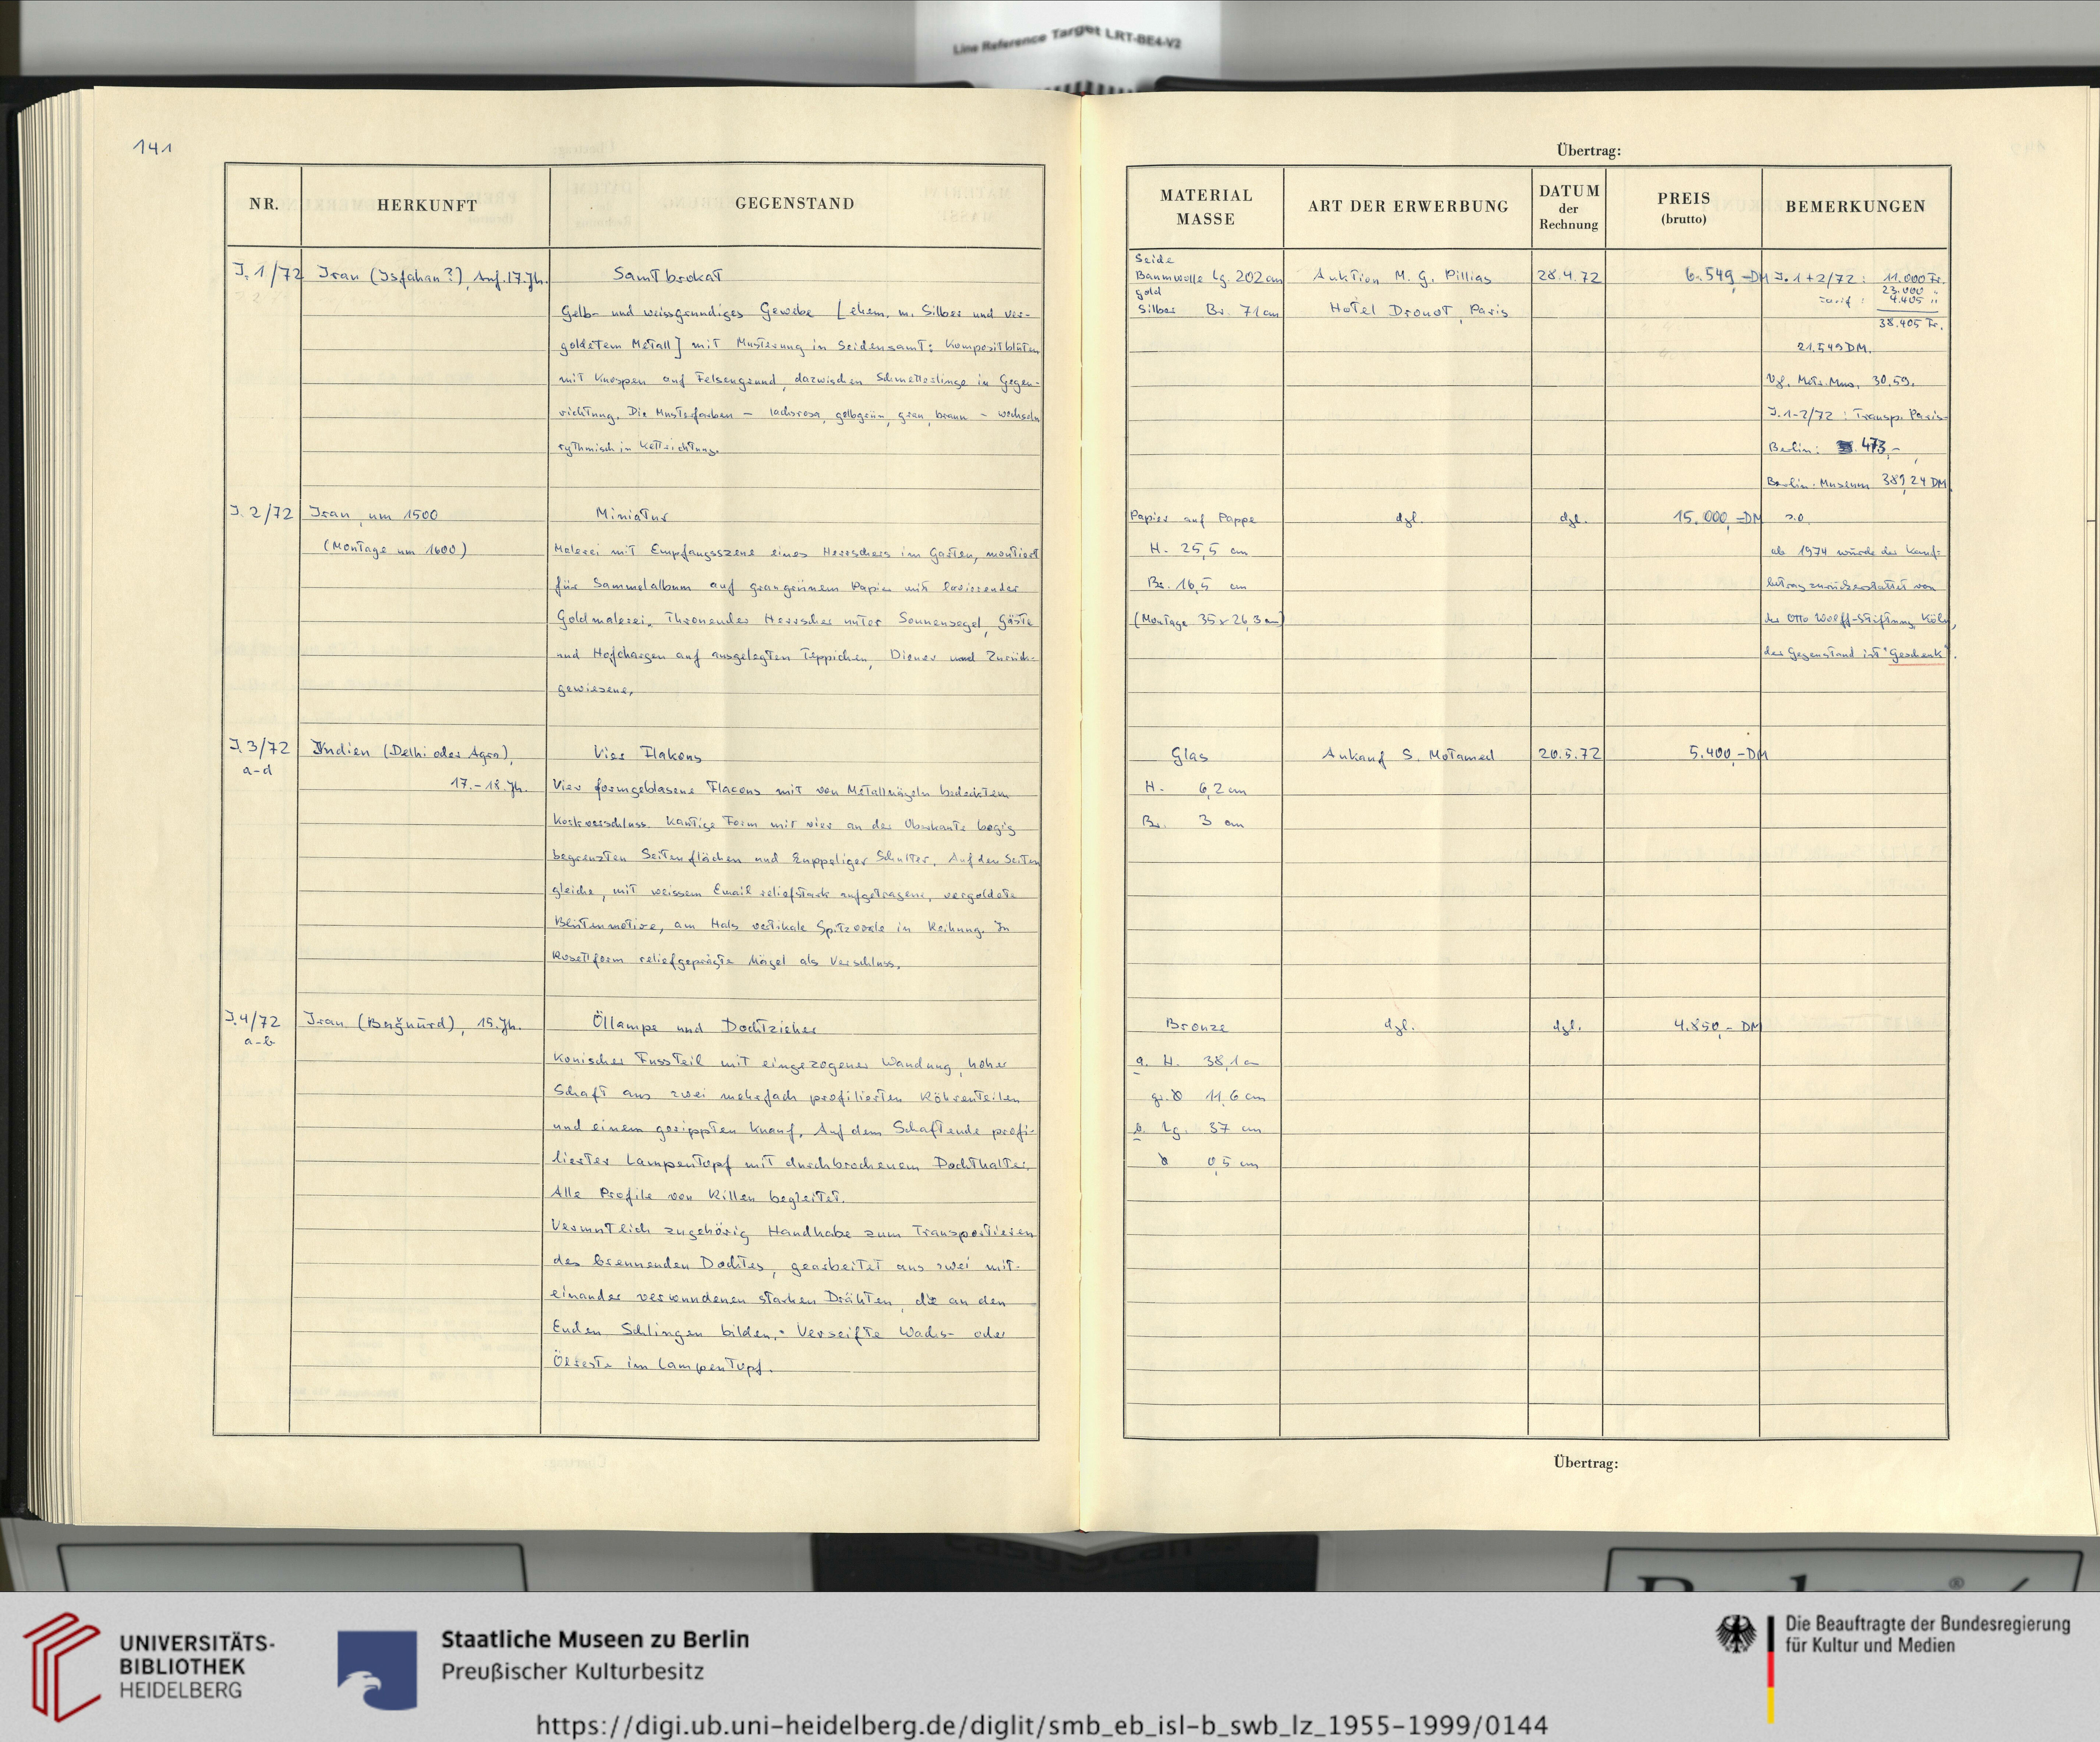 Line Reference Target LRT-BE4-V2
141
NR.
HERKUNFT
GEGENSTAND
J. 1/72
Iran (Isfahan?), Anf. 17. Jh.
Samtbrokat
Gelb- und weissgrundiges Gewebe [ehem. m. Silber und ver-
goldetem Metall] mit Musterung in Seidensamt: Kompositblüten
mit Knospen auf Felsengrund, dazwischen Schmetterlinge in Gegen-
richtung. Die Musterfarben – lachsrosa, gelbgrün, grau, braun – wechseln
rythmisch in Kettrichtung.
J. 2/72
Iran, um 1500
(Montage um 1600)
Miniatur
Malerei mit Empfangsszene eines Herrschers im Garten, montiert
für Sammelalbum auf graugrünem Papier mit lavierender
Goldmalerei. Thronender Herrscher unter Sonnensegel, Gäste
und Hofchargen auf ausgelegten Teppichen, Diener und Zurück-
gewiesene.
J. 3/72
a-d
Indien (Delhi oder Agra),
17.-18. Jh.
Vier Flakons
Vier formgeblasene Flacons mit von Metallnägeln bedecktem
Korkverschluss. Kantige Form mit vier an der Oberkante bogig
begrenzten Seitenflächen und kuppeliger Schulter. Auf den Seiten
gleiche, mit weissem Email reliefstark aufgetragene, vergoldete
Blütenmotive, am Hals vertikale Spitzovale in Reihung. In
Rosettform reliefgeprägte Nägel als Verschluss.
J. 4/72
a-b
Iran (Boǧnūrd), 15. Jh.
Öllampe und Dochtzieher
Konischer Fussteil mit eingezogener Wandung, hoher
Schaft aus zwei mehrfach profilierten Röhrenteilen
und einem gerippten Knauf. Auf dem Schaftende profi-
lierter Lampentopf mit durchbrochenem Dochthalter.
Alle Profile von Rillen begleitet.
Vermutlich zugehörig Handhabe zum Transportieren
des brennenden Dochtes, gearbeitet aus zwei mit-
einander verwundenen starken Drähten, die an den
Enden Schlingen bilden. - Verseifte Wachs- oder
Ölreste im Lampentopf.
Übertrag:
MATERIAL
MASSE
ART DER ERWERBUNG
DATUM
der
Rechnung
PREIS
(brutto)
BEMERKUNGEN
Seide
Baumwolle Lg. 202 cm
Gold
Silber Br. 71 cm
Auktion M. G. Pillias
Hotel Drouot, Paris
28.4.72
6.549,-DM
J. 1+2/72: 11.000 Fr.
23.000 "
Tarif: 4.405 "
38.405 Fr.
21.549 DM.
Vgl. Metr. Mus. 30.59.
J. 1-2/72: Transp. Paris-
Berlin: 473,-
Berlin-Museum 389,24 DM
Papier auf Pappe
H. 25,5 cm
Br. 16,5 cm
(Montage 35 x 26,3 cm)
dgl.
dgl.
15.000,-DM
s.o.
ab 1974 wurde der Kauf-
betrag zurückerstattet von
der Otto Wolff-Stiftung, Köln,
der Gegenstand ist "Geschenk".
Glas
H. 6,2 cm
Br. 3 cm
Ankauf S. Motamed
20.5.72
5.400,-DM
Bronze
a. H. 38,1 cm
gr. Ø 11,6 cm
b. Lg. 37 cm
Ø 0,5 cm
dgl.
dgl.
4.850,- DM
Übertrag:
UNIVERSITÄTS-
BIBLIOTHEK
HEIDELBERG
Staatliche Museen zu Berlin
Preußischer Kulturbesitz
Die Beauftragte der Bundesregierung
für Kultur und Medien
https://digi.ub.uni-heidelberg.de/diglit/smb_eb_isl-b_swb_lz_1955-1999/0144